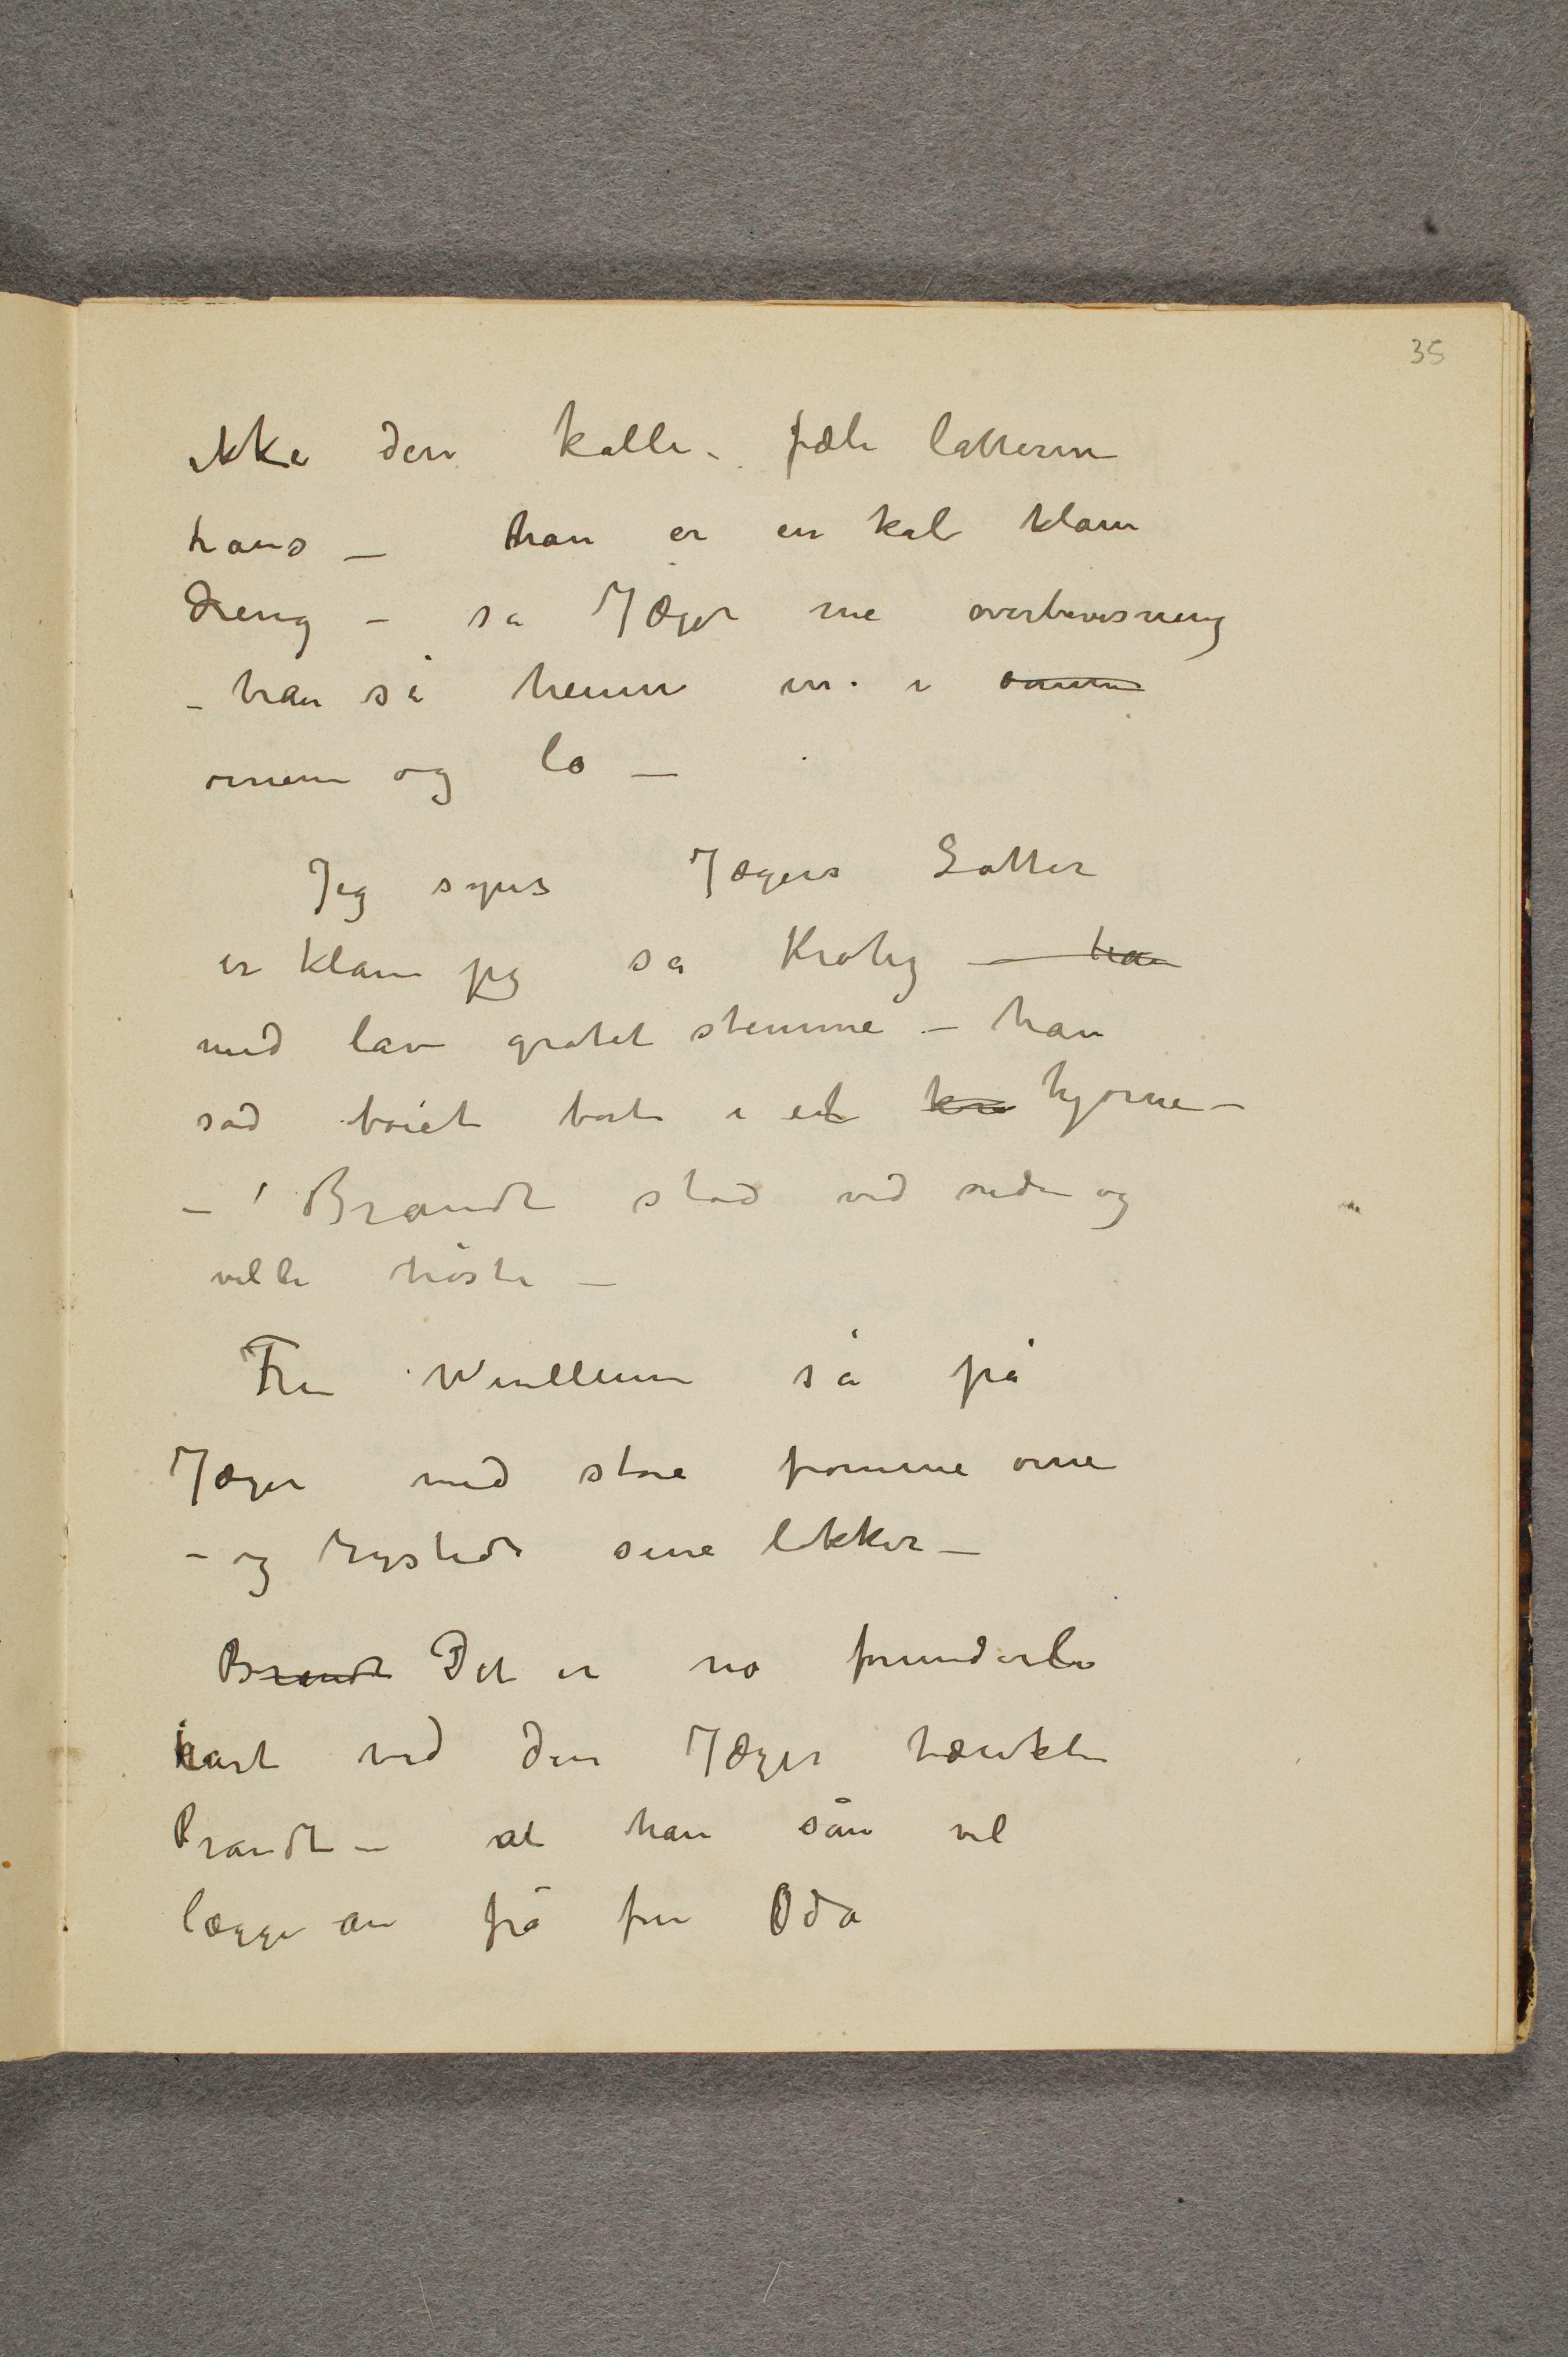 35
ikke den kalle fæle latteren
hans – han er en kal klam
dreng – sa Jæger me overbevisning
– han så henne in i
ørnene og lo –
Jeg synes Jægers Latter
er klam jeg sa Krohg – han
med lav gråtet stemme – han
sad bøiet bort i et kra hjørne –
– Brandt stod ved siden og
ville høste –
Fru så på
Jæger med store fromme øine
– og rystede sine lokker –
Brandt Det er no forunderli
rart ved den Jæger tænkte
Brandt – at han sån vil
lægge an på fru Oda